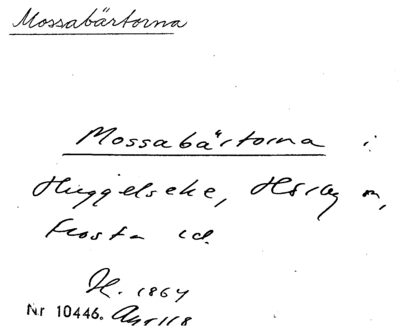 Mossabärtorna
Mossabärtorna i
Huggelseke, Hörby sn,
Frosta hd.
H. 1864
Nr 10446.